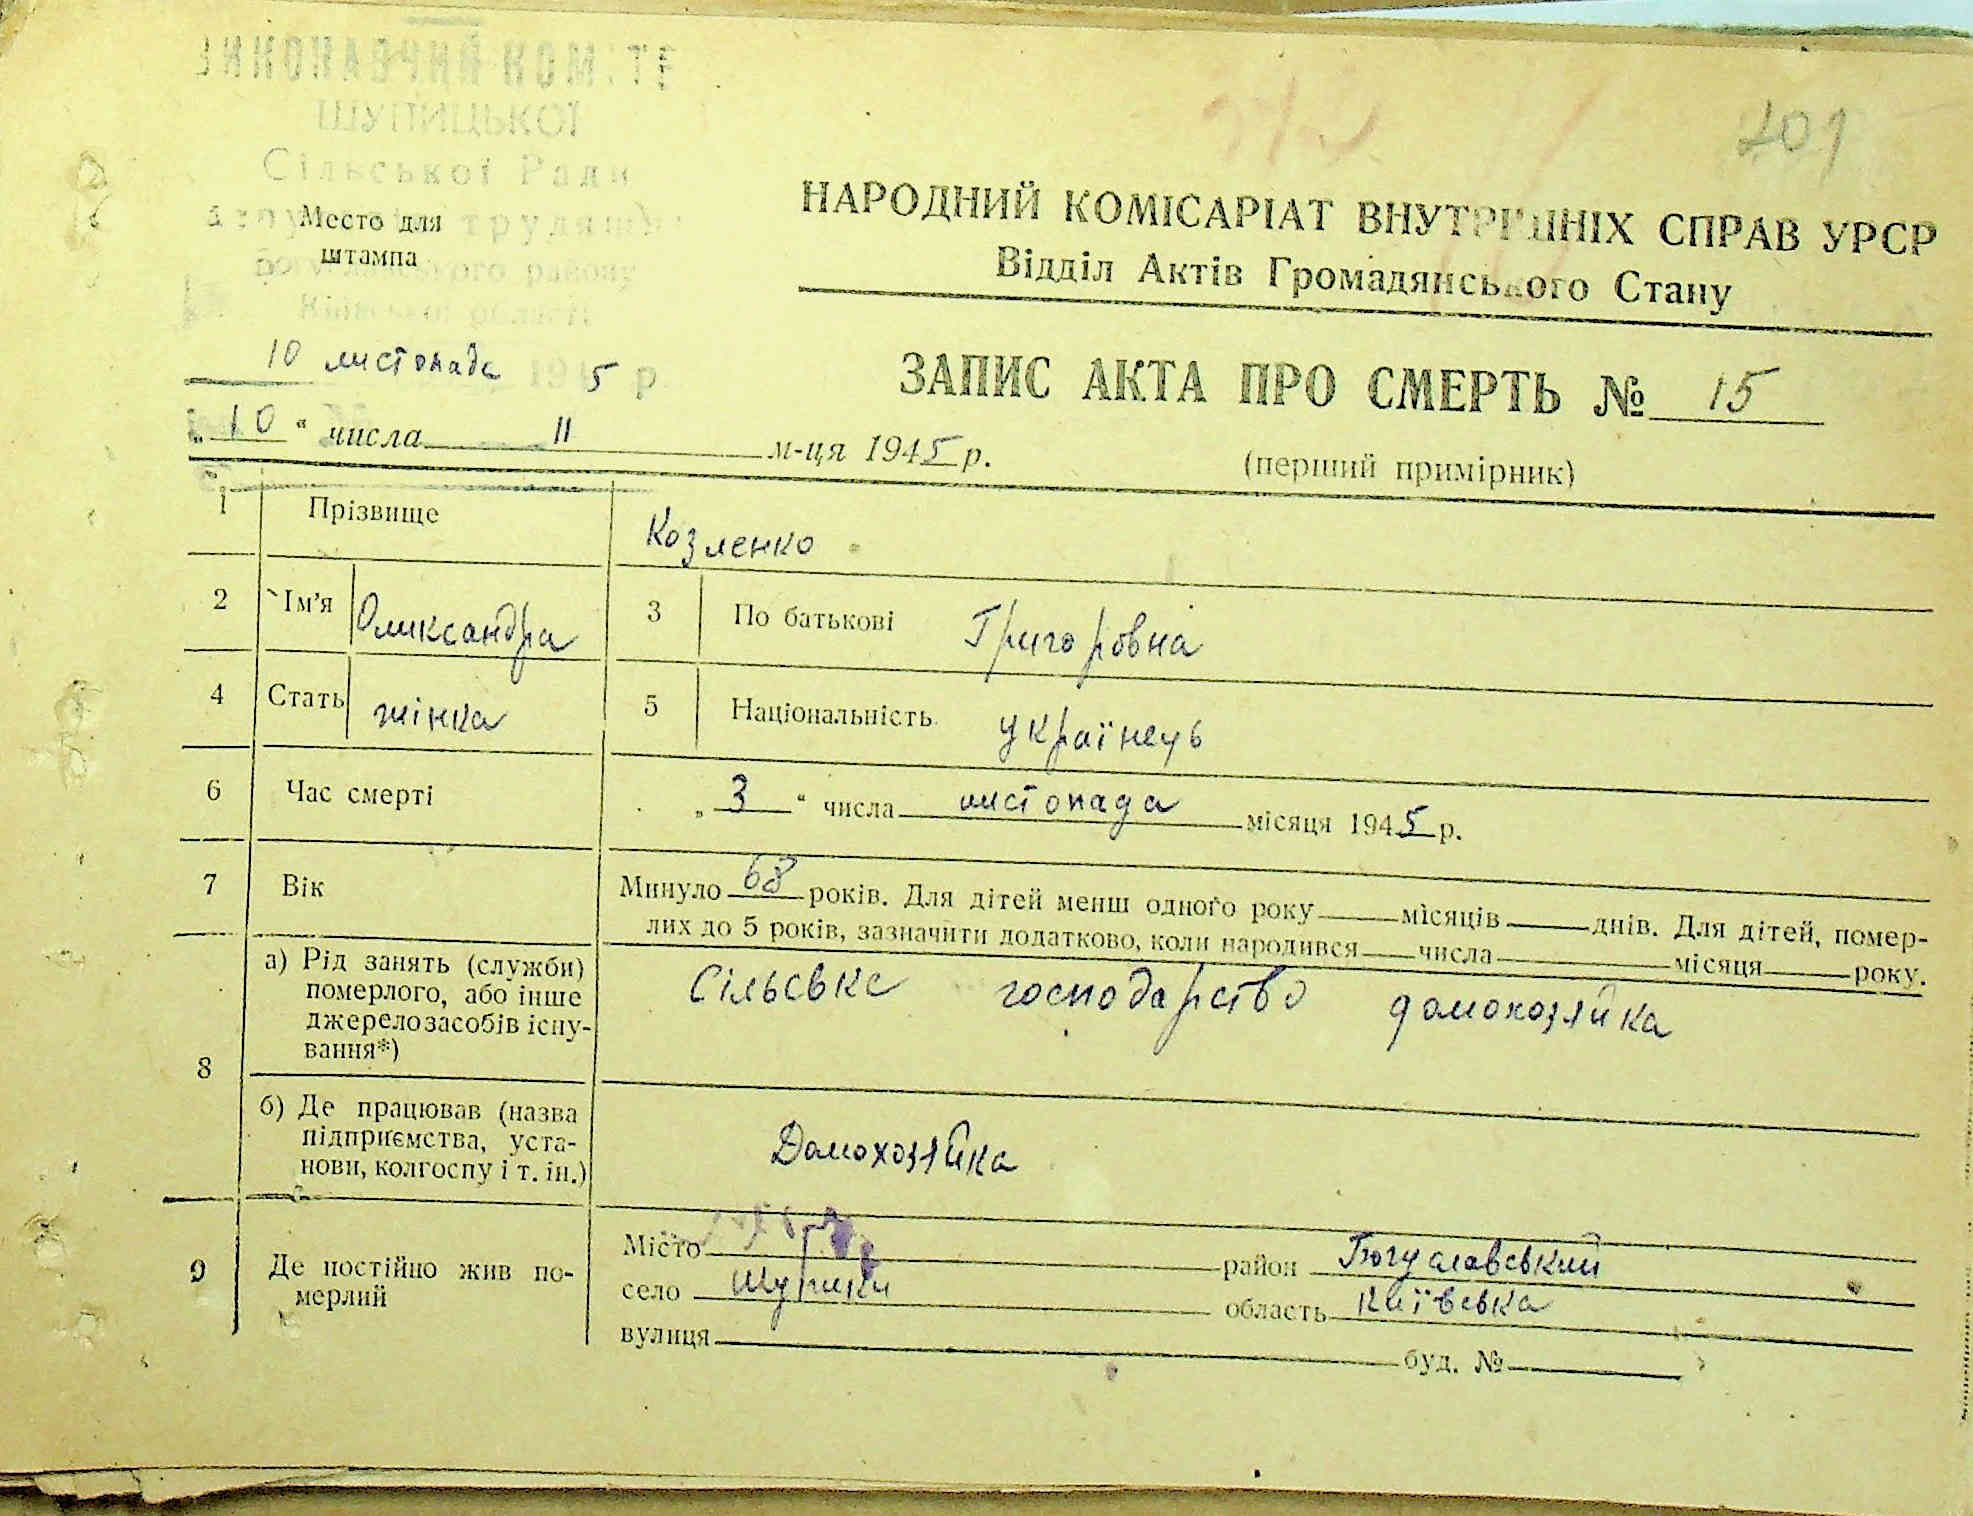 ВИКОНАВЧИЙ КОМІТЕ
ШУПИЦЬКОЇ
Сільської Ради
трудящих
Богуславського району
Київської області
Место для
штампа
10 листопада 1945 р
„10“ числа 11 м-ця 1945 р.
201
НАРОДНИЙ КОМІСАРІАТ ВНУТРІШНІХ СПРАВ УРСР
Відділ Актів Громадянського Стану
ЗАПИС АКТА ПРО СМЕРТЬ № 15
(перший примірник)
1 Прізвище Козленко
2 Ім'я Олександра 3 По батькові Григоровна
4 Стать жінка 5 Національність українець
6 Час смерті „3“ числа листопада місяця 1945 р.
7 Вік Минуло 68 років. Для дітей менш одного року місяців днів. Для дітей, помер-
лих до 5 років, зазначити додатково, коли народився числа місяця року.
8 а) Рід занять (служби)
померлого, або інше
джерело засобів існу-
вання*)
Сільське господарство домохозяйка
б) Де працював (назва
підприємства, уста-
нови, колгоспу і т. ін.)
Домохозяйка
9 Де постійно жив по-
мерлий
Місто район Богуславський
село область Київська
вулиця буд. №